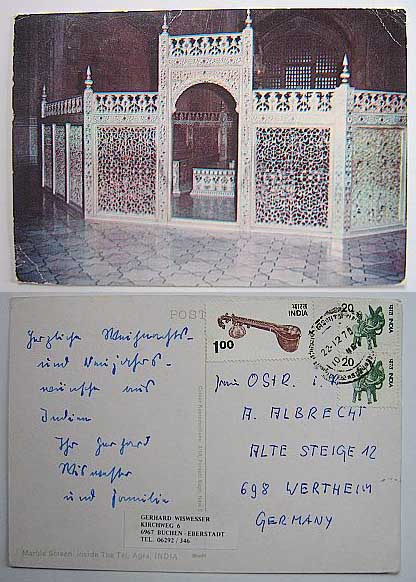 POST
भारत
INDIA
1.00
20
भारत INDIA
20
भारत INDIA
22.12.78
Herzliche Weihnachts-
und Neujahrs-
wünsche aus
Indien
Ihr Gerhard
Wiswesser
und Familie
OSTR. i.R.
A. ALBRECHT
ALTE STEIGE 12
698 WERTHEIM
GERMANY
GERHARD WISWESSER
KIRCHWEG 6
6967 BUCHEN-EBERSTADT
TEL. 06292 / 346
Marble Screen, Inside The Taj, Agra, INDIA